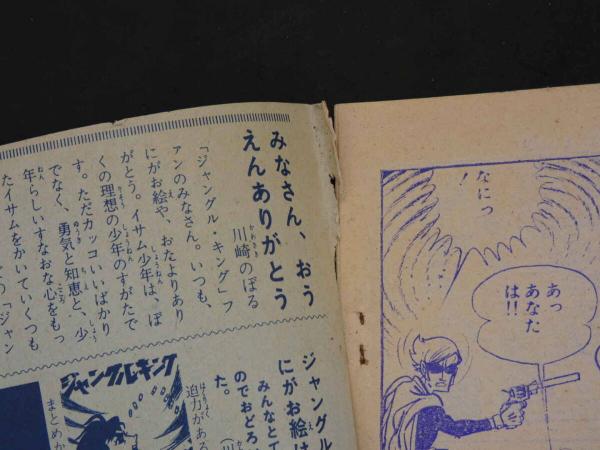 なにっ
!
あっ
あなた
は!!
みなさん、おう
えんありがとう
川崎のぼる
「ジャングル・キング」フ
ァンのみなさん。いつも、
にがお絵や、おたよりあり
がとう。イサム少年は、ぼ
くの理想の少年のすがたで
す。ただカッコいいばかり
でなく、勇気と知恵と、少
年らしいすなおな心をもっ
たイサムをかいていくつも
「ジャン
ジャングル
にがお絵は
みんなとて
のでおどろい
た。
迫力がある
まとめか
ジャングルキング